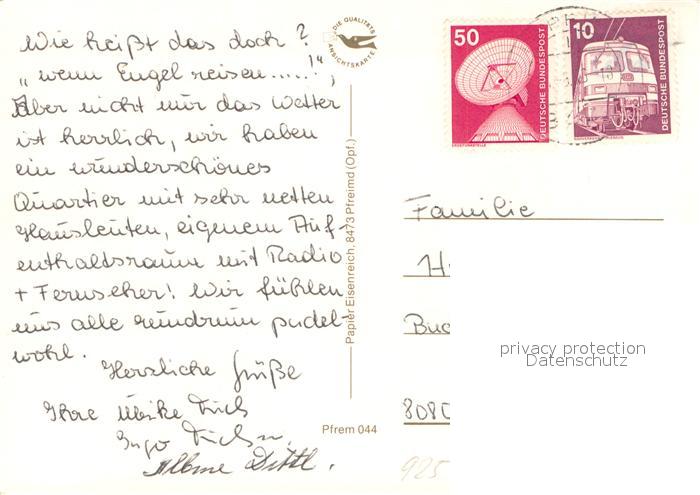 Wie heißt das doch?
„wenn Engel reisen.....!",
Aber nicht nur das Wetter
ist herrlich, wir haben
ein wunderschönes
Quartier mit sehr netten
Hausleuten, eigenem Auf-
enthaltsraum mit Radio
+ Fernseher! Wir fühlen
uns alle rundrum pudel-
wohl.
Herzliche Grüße
Ihre Ulrike
Ingo
DIE QUALITÄTS
ANSICHTSKARTE
Papier Eisenreich, 8473 Pfreimd (Opf.)
Pfrem 044
50
DEUTSCHE BUNDESPOST
ERDEFUNKSTELLE
10
DEUTSCHE BUNDESPOST
Familie
H
Buc
8080
925
privacy protection
Datenschutz